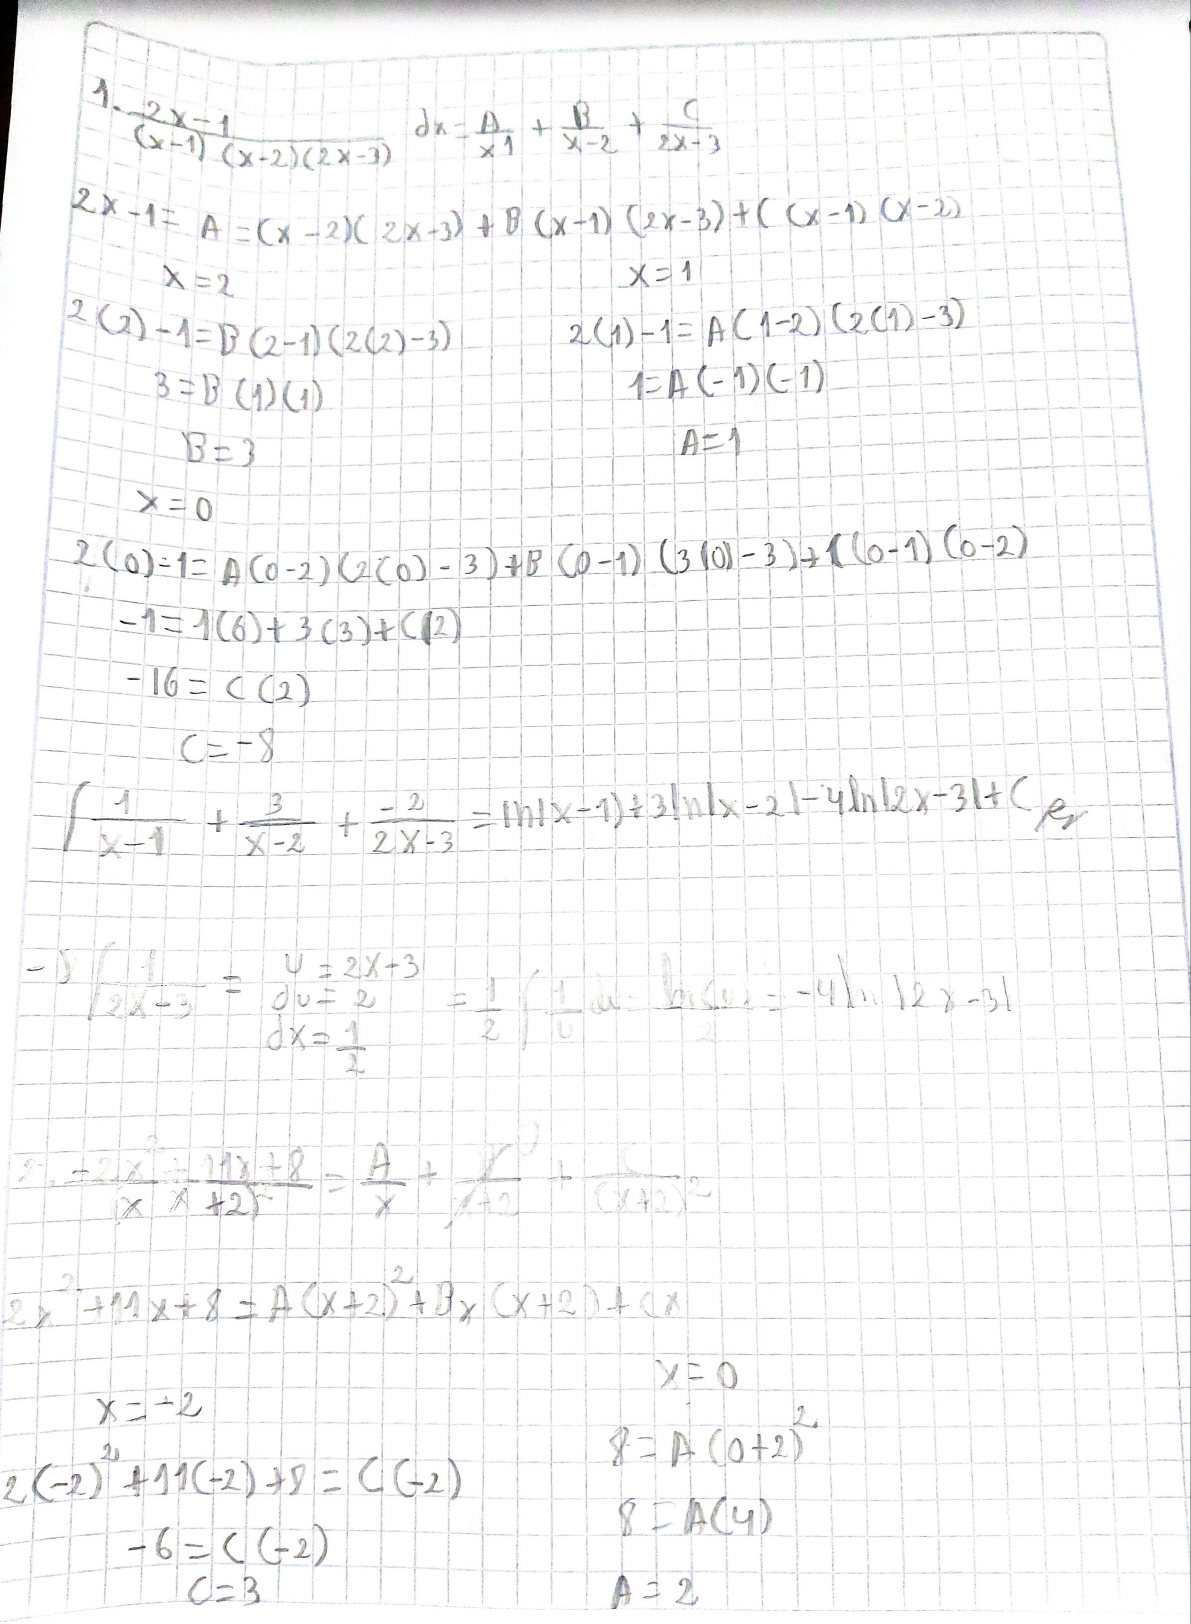 1. 2x-1 / (x-1)(x-2)(2x-3) dx = A/x1 + B/x-2 + C/2x-3
2x-1= A=(x-2)(2x-3)+B(x-1)(2x-3)+C(x-1)(x-2)
x=2 x=1
2(2)-1=B(2-1)(2(2)-3) 2(1)-1=A(1-2)(2(1)-3)
3=B(1)(1) 1=A(-1)(-1)
B=3 A=1
x=0
2(0)-1=A(0-2)(2(0)-3)+B(0-1)(3(0)-3)+C(0-1)(0-2)
-1=1(6)+3(3)+C(2)
-16=C(2)
C=-8
∫ 1/x-1 + 3/x-2 + -2/2x-3 = ln|x-1|+3ln|x-2|-4ln|2x-3|+C
∫ 1/2x-3 = u=2x-3 du=2 dx=1/2 = 1/2 ∫ 1/u = -4ln|2x-3|
2x²+11x+8 / x(x+2)² = A/x + /x+2 + C/(x+2)²
2x²+11x+8=A(x+2)²+Bx(x+2)+Cx
x=-2 x=0
2(-2)²+11(-2)+8=C(-2) 8=A(0+2)²
-6=C(-2) 8=A(4)
C=3 A=2